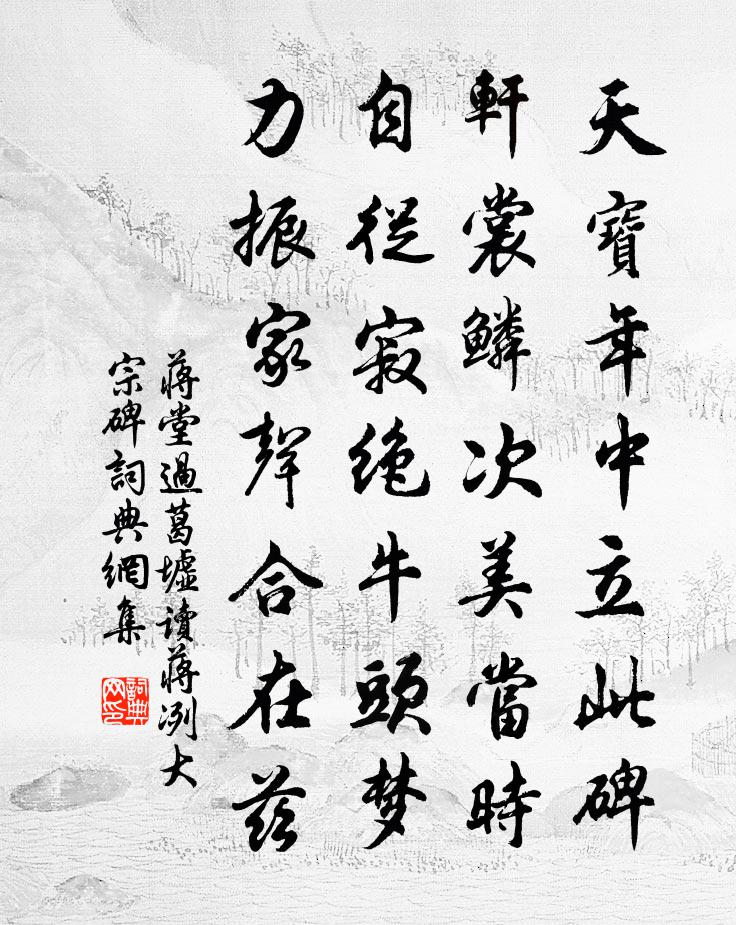 天寶年中立此碑
軒裳鱗次美當時
自從寂絕牛頭梦
力振家聲合在茲
蔣堂過葛墟讀蔣冽大
宗碑詞典網集
詞典
网印